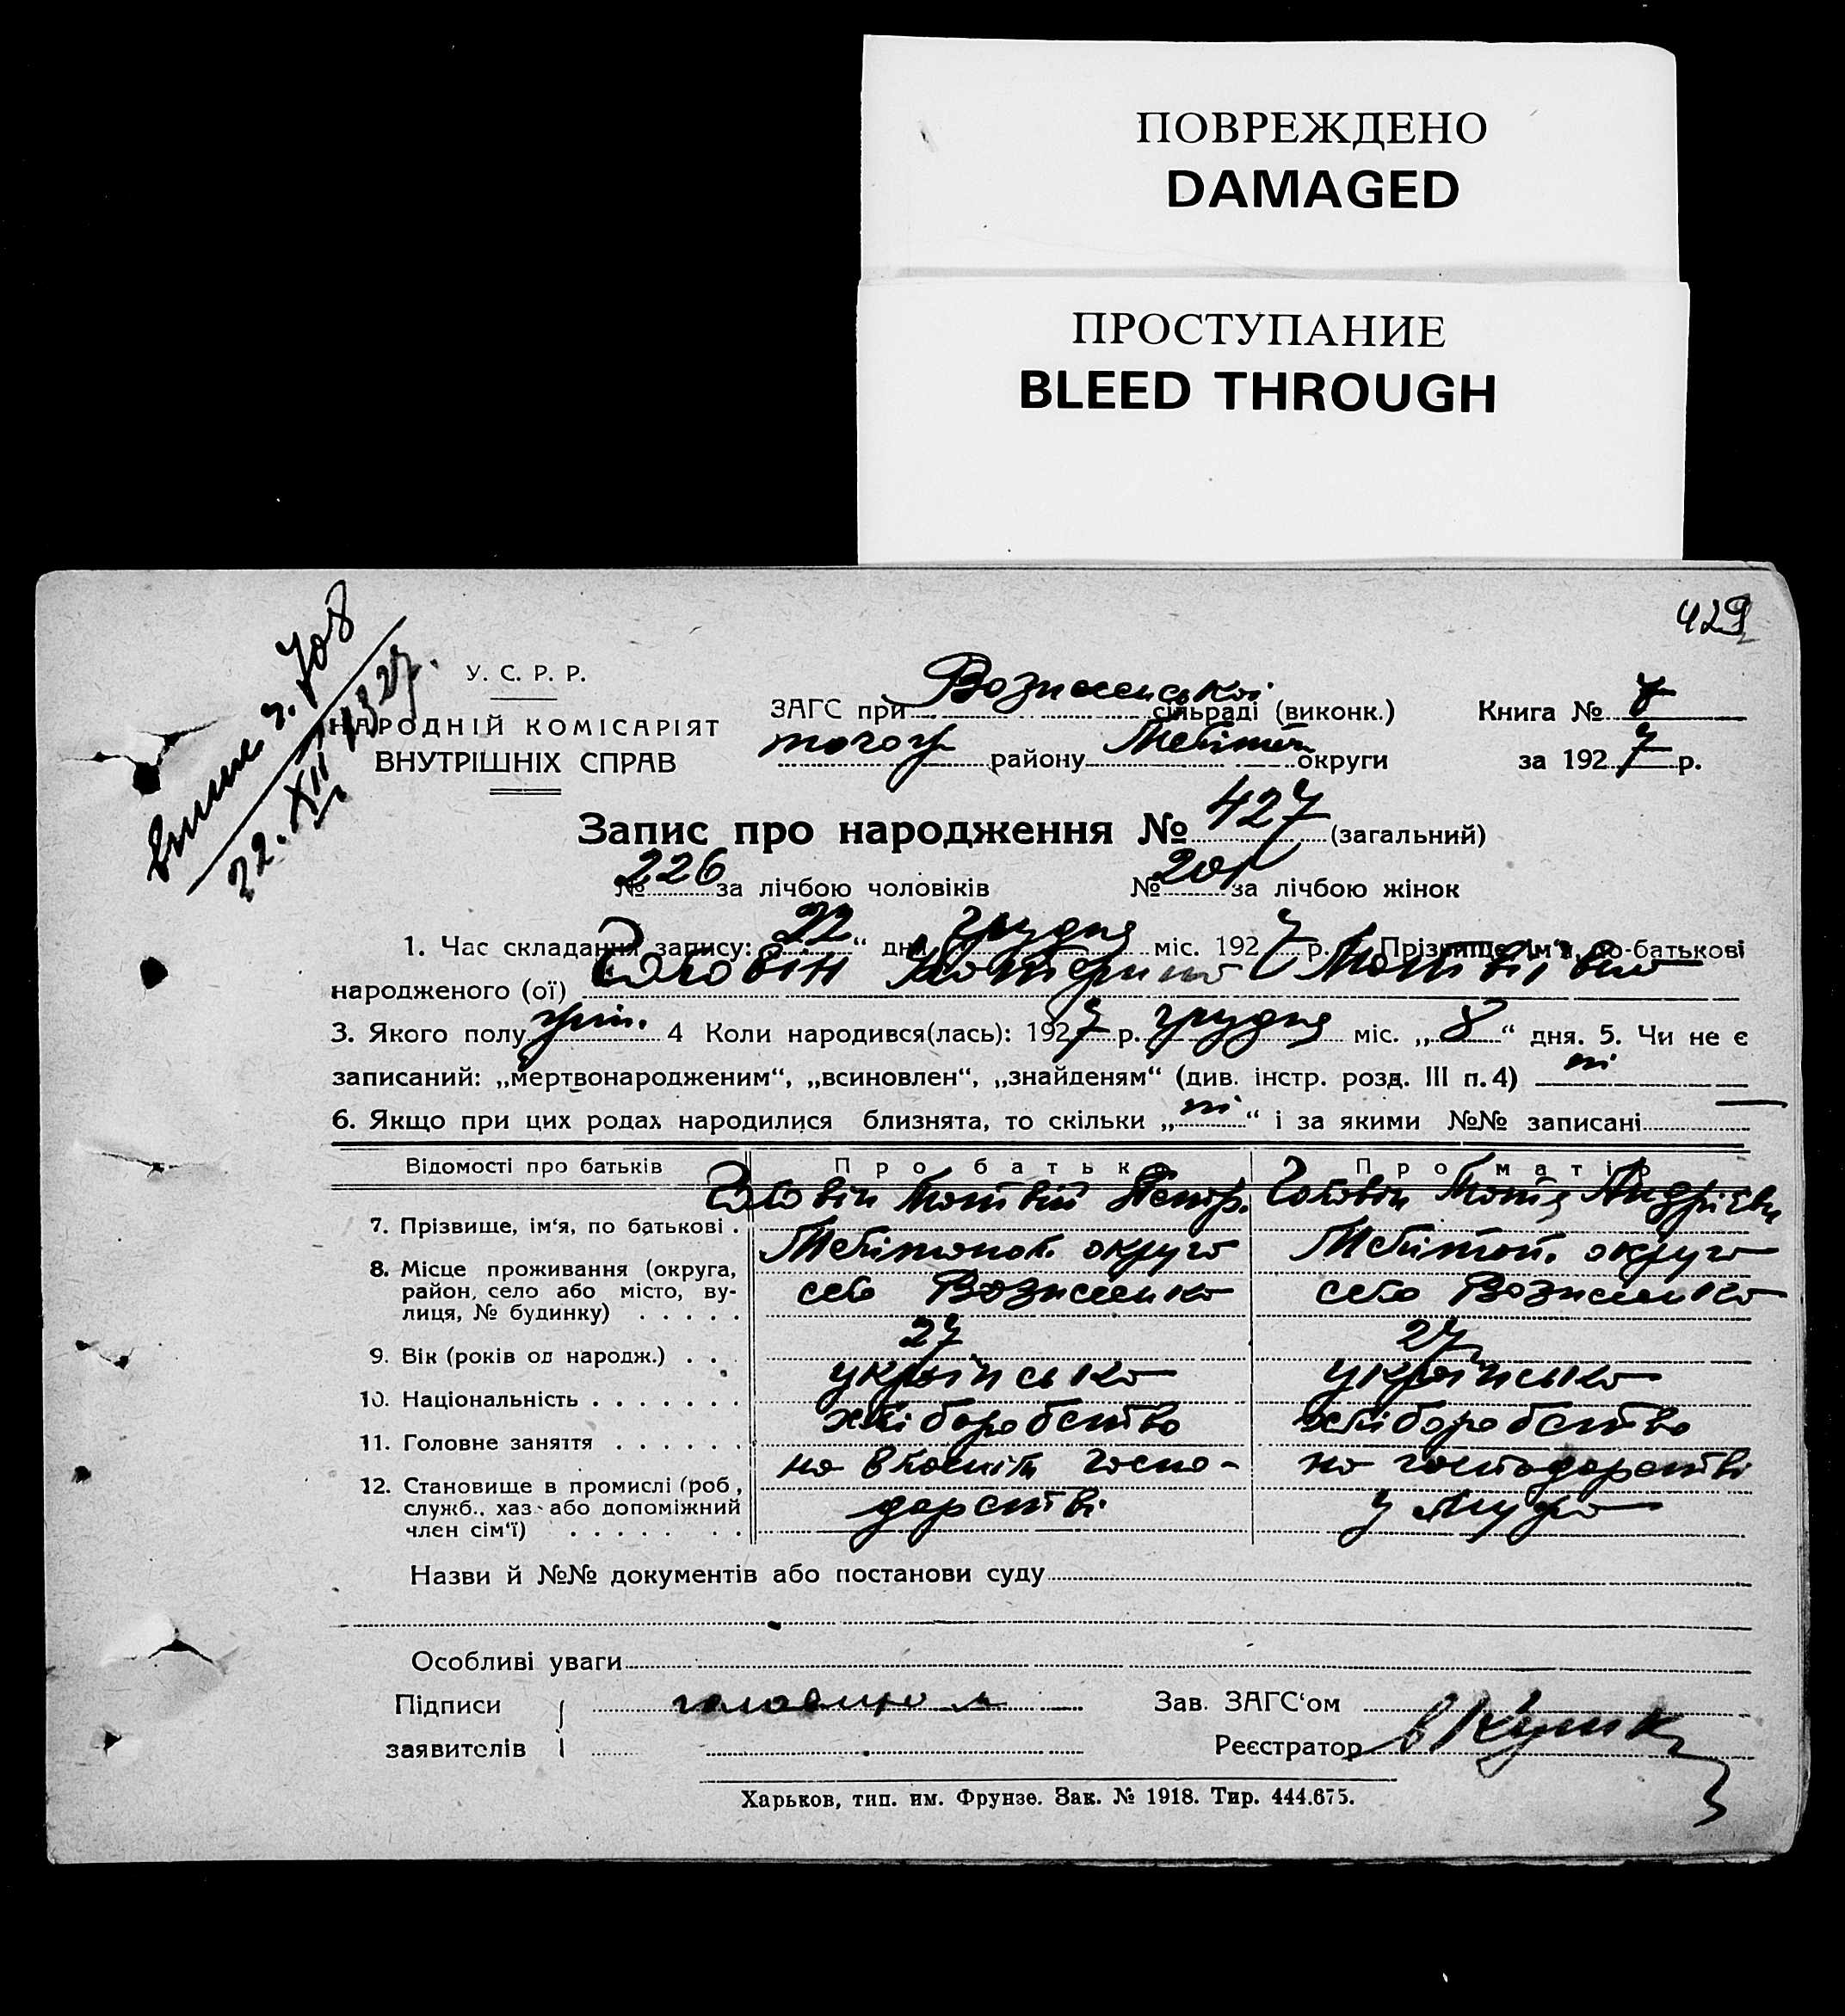 ПОВРЕЖДЕНО
DAMAGED
ПРОСТУПАНИЕ
BLEED THROUGH
429
22. XII 1927.
У. С. Р. Р.
НАРОДНІЙ КОМІСАРІЯТ
ВНУТРІШНІХ СПРАВ
ЗАГС при Вознесенської сільраді (виконк.)
Книга №
району Мелітоп округи
за 1927 р.
Запис про народження № 427 (загальний)
№ 226 за лічбою чоловіків № 201 за лічбою жінок
1. Час складання запису: „22“ дня грудня міс. 1927 р. Прізвище, ім'я, по-батькові
народженого (ої) Головін Катерина Матвіївна
3. Якого полу жін. 4 Коли народився(лась): 1927 р. грудня міс. „8“ дня. 5. Чи не є
записаний: „мертвонародженим“, „всиновлен“, „знайденям“ (див. інстр. розд. III п. 4) ні
6. Якщо при цих родах народилися близнята, то скільки „ні“ і за якими №№ записані —
Відомості про батьків
Про батька
Про матір
7. Прізвище, ім'я, по батькові . Головін Матвій Петр. Головін Мотя Андрієвн
8. Місце проживання (округа, район, село або місто, вулиця, № будинку) . . . . .
Мелітопол. округа
село Вознесенка
Мелітоп. округа
село Вознесенка
9. Вік (років од народж.) . . . 27 27
10. Національність . . . . . . . українська українська
11. Головне заняття . . . . . . хліборобство хліборобство
12. Становище в промислі (роб., служб., хаз. або допоміжний член сім'ї) . . . . . . .
на власнім госпо-
дарстві
на господарстві
у мужа
Назви й №№ документів або постанови суду
Особливі уваги
Підписи
заявителів
Зав. ЗАГС'ом
Реєстратор В Кулик
Харьков, тип. им. Фрунзе. Зак. № 1918. Тир. 444.675.